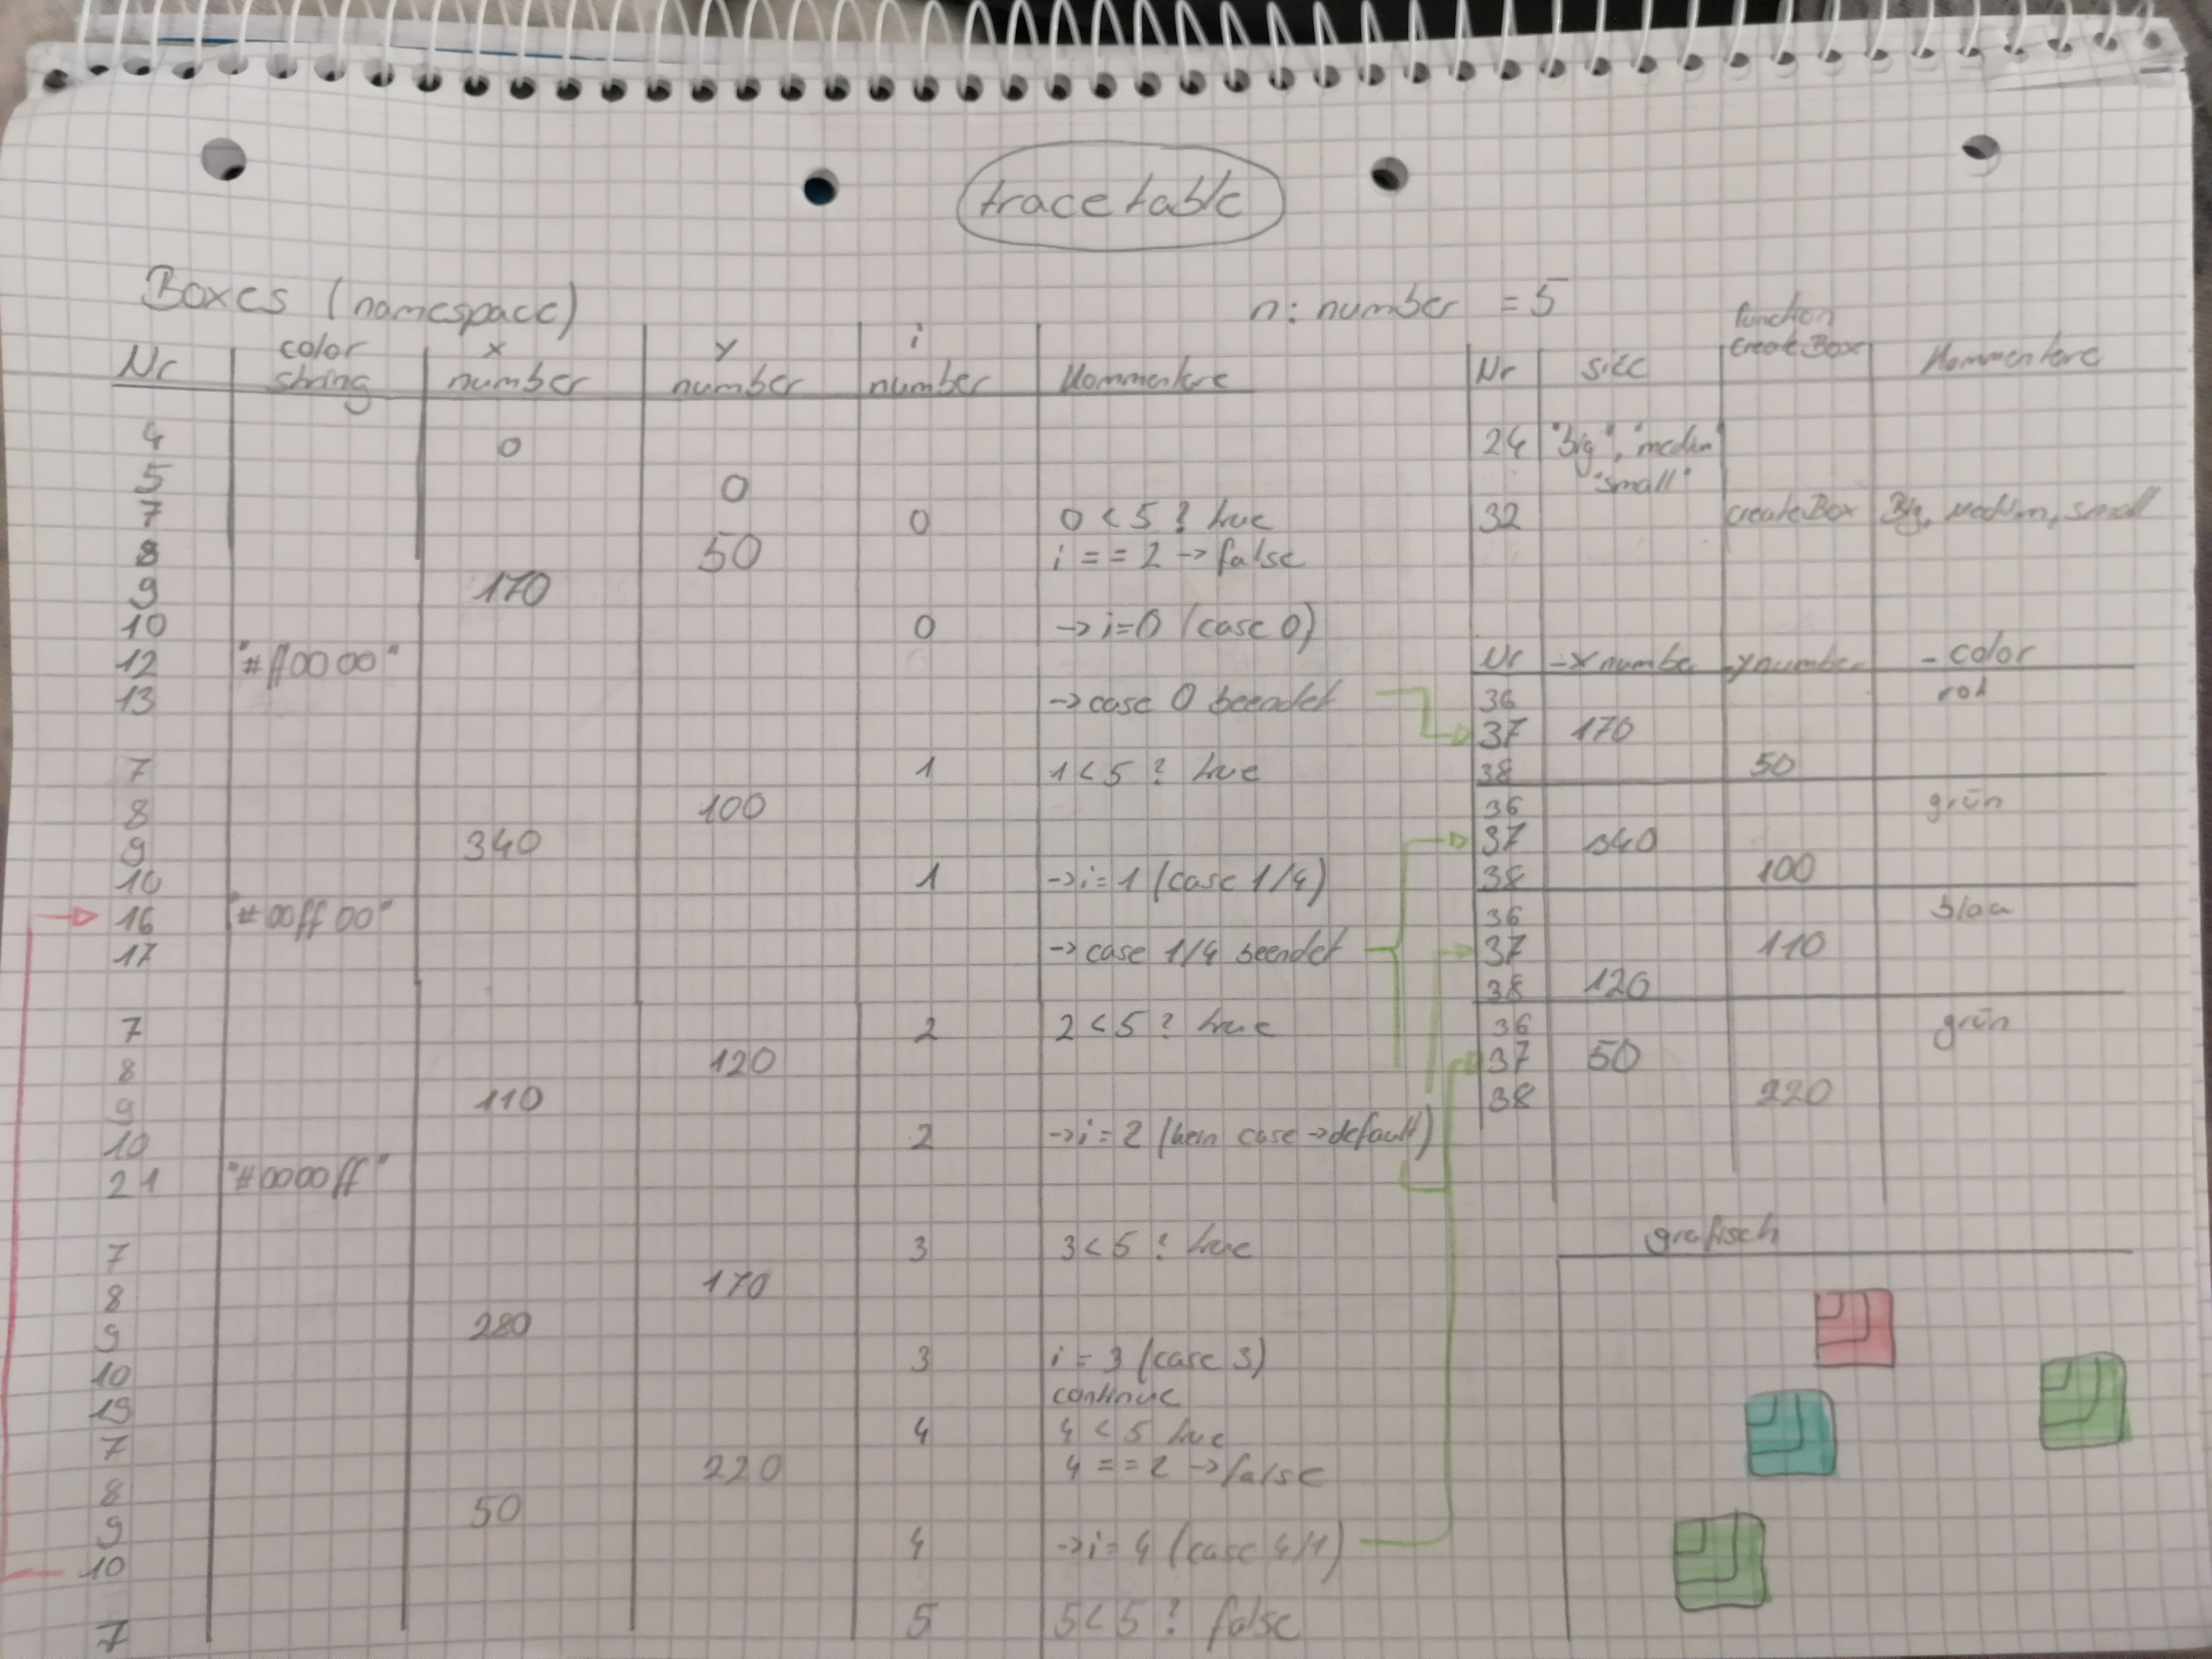 trace table
Boxes (namespace)
n: number = 5
Nr color string x number y number i number Kommentare
4 0
5 0
7 0 0 < 5 ? true
8 50 i == 2 -> false
9 170
10 0 -> i=0 (case 0)
12 "#ff0000"
13 -> case 0 beendet
7 1 1 < 5 ? true
8 100
9 340
10 1 -> i = 1 (case 1/4)
16 "#00ff00"
17 -> case 1/4 beendet
7 2 2 < 5 ? true
8 120
9 110
10 2 -> i = 2 (kein case -> default)
21 "#0000ff"
7 3 3 < 5 ? true
8 170
9 280
10 3 i = 3 (case 3)
19 continue
7 4 4 < 5 true
220 4 == 2 -> false
8
50
9
4 -> i = 4 (case 4/1)
10
7 5 5 < 5 ? false
Nr size function createBox Kommentare
24 "big", "medium"
"small"
32 createBox Big, medium, small
Nr -x number -y number -color
36 rot
37 170
38 50
36 grün
37 340
38 100
36 blau
37 110
38 120
36 grün
37 50
38 220
grafisch